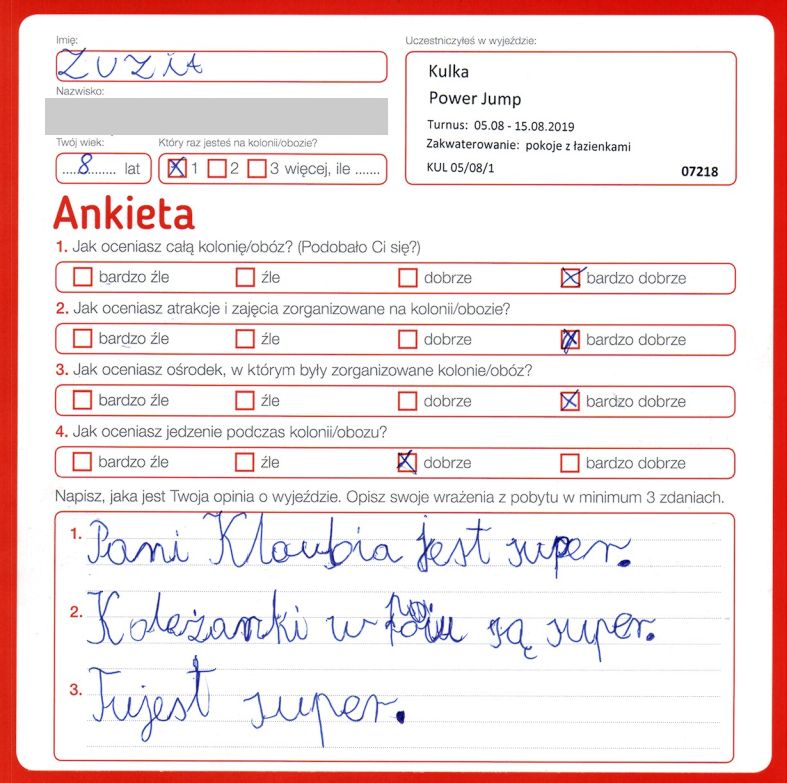 Imię:
ZUZIA
Uczestniczyłeś w wyjeździe:
Kulka
Power Jump
Turnus: 05.08 - 15.08.2019
Zakwaterowanie: pokoje z łazienkami
KUL 05/08/1 07218
Nazwisko:
Twój wiek:
8 lat
Który raz jesteś na kolonii/obozie?
1 2 3 więcej, ile .......
Ankieta
1. Jak oceniasz całą kolonię/obóz? (Podobało Ci się?)
bardzo źle źle dobrze bardzo dobrze
2. Jak oceniasz atrakcje i zajęcia zorganizowane na kolonii/obozie?
bardzo źle źle dobrze bardzo dobrze
3. Jak oceniasz ośrodek, w którym były zorganizowane kolonie/obóz?
bardzo źle źle dobrze bardzo dobrze
4. Jak oceniasz jedzenie podczas kolonii/obozu?
bardzo źle źle dobrze bardzo dobrze
Napisz, jaka jest Twoja opinia o wyjeździe. Opisz swoje wrażenia z pobytu w minimum 3 zdaniach.
1. Pani Kloubia jest super.
2. Koleżanki w są super.
3. Tujest super.